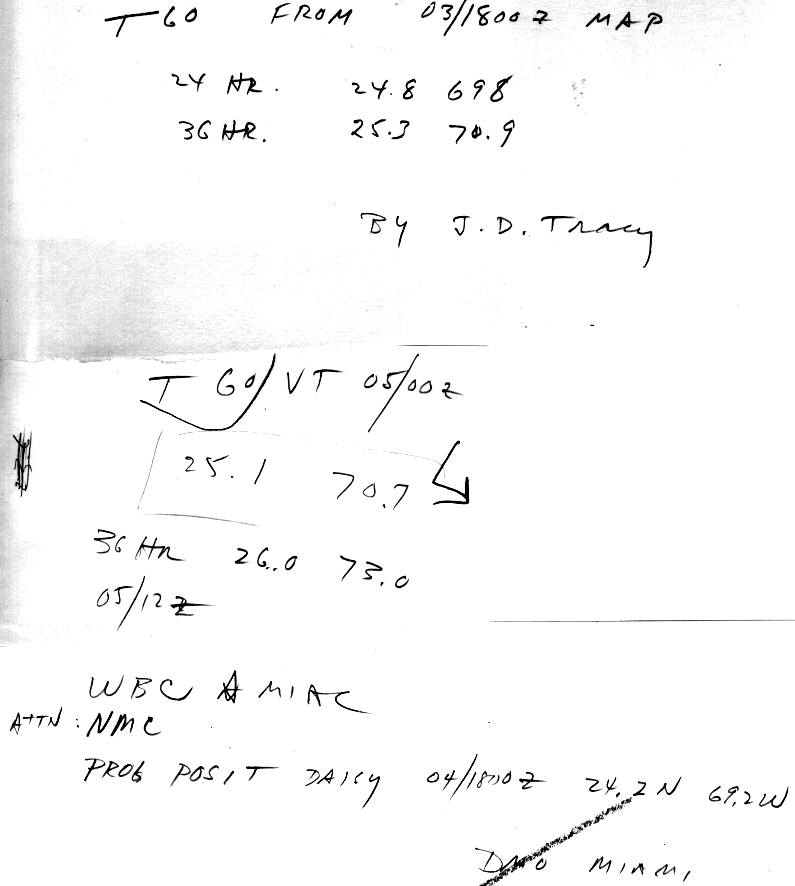 T 60 FROM 03/1800Z MAP
24 HR. 24.8 698
36 HR. 25.3 70.9
BY J.D. Tracy
T 60/VT 05/00Z
25.1 70.7
36 HR 26.0 73.0
05/12Z
WBC MIAC
ATTN: NMC
PROG POSIT DAISY 04/1800Z 24.2N 69.2W
DMO MIAMI